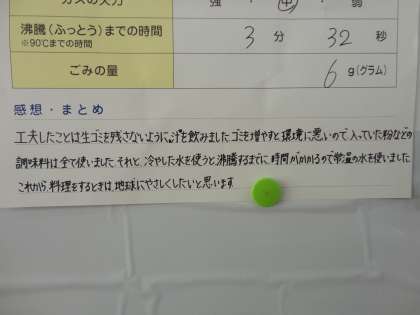 ガスの火力 強 ・ 中 ・ 弱
沸騰（ふっとう）までの時間 3 分 32 秒
※90℃までの時間
ごみの量 6 g（グラム）
感想・まとめ
工夫したことは生ゴミを残さないように汁を飲みましたゴミを増やすと環境に悪いので、入っていた粉などの
調味料は全て使いました。それと、冷やした水を使うと沸騰するまでに時間がかかるので常温の水を使いました
これから、料理をするときは、地球にやさしくしたいと思います。